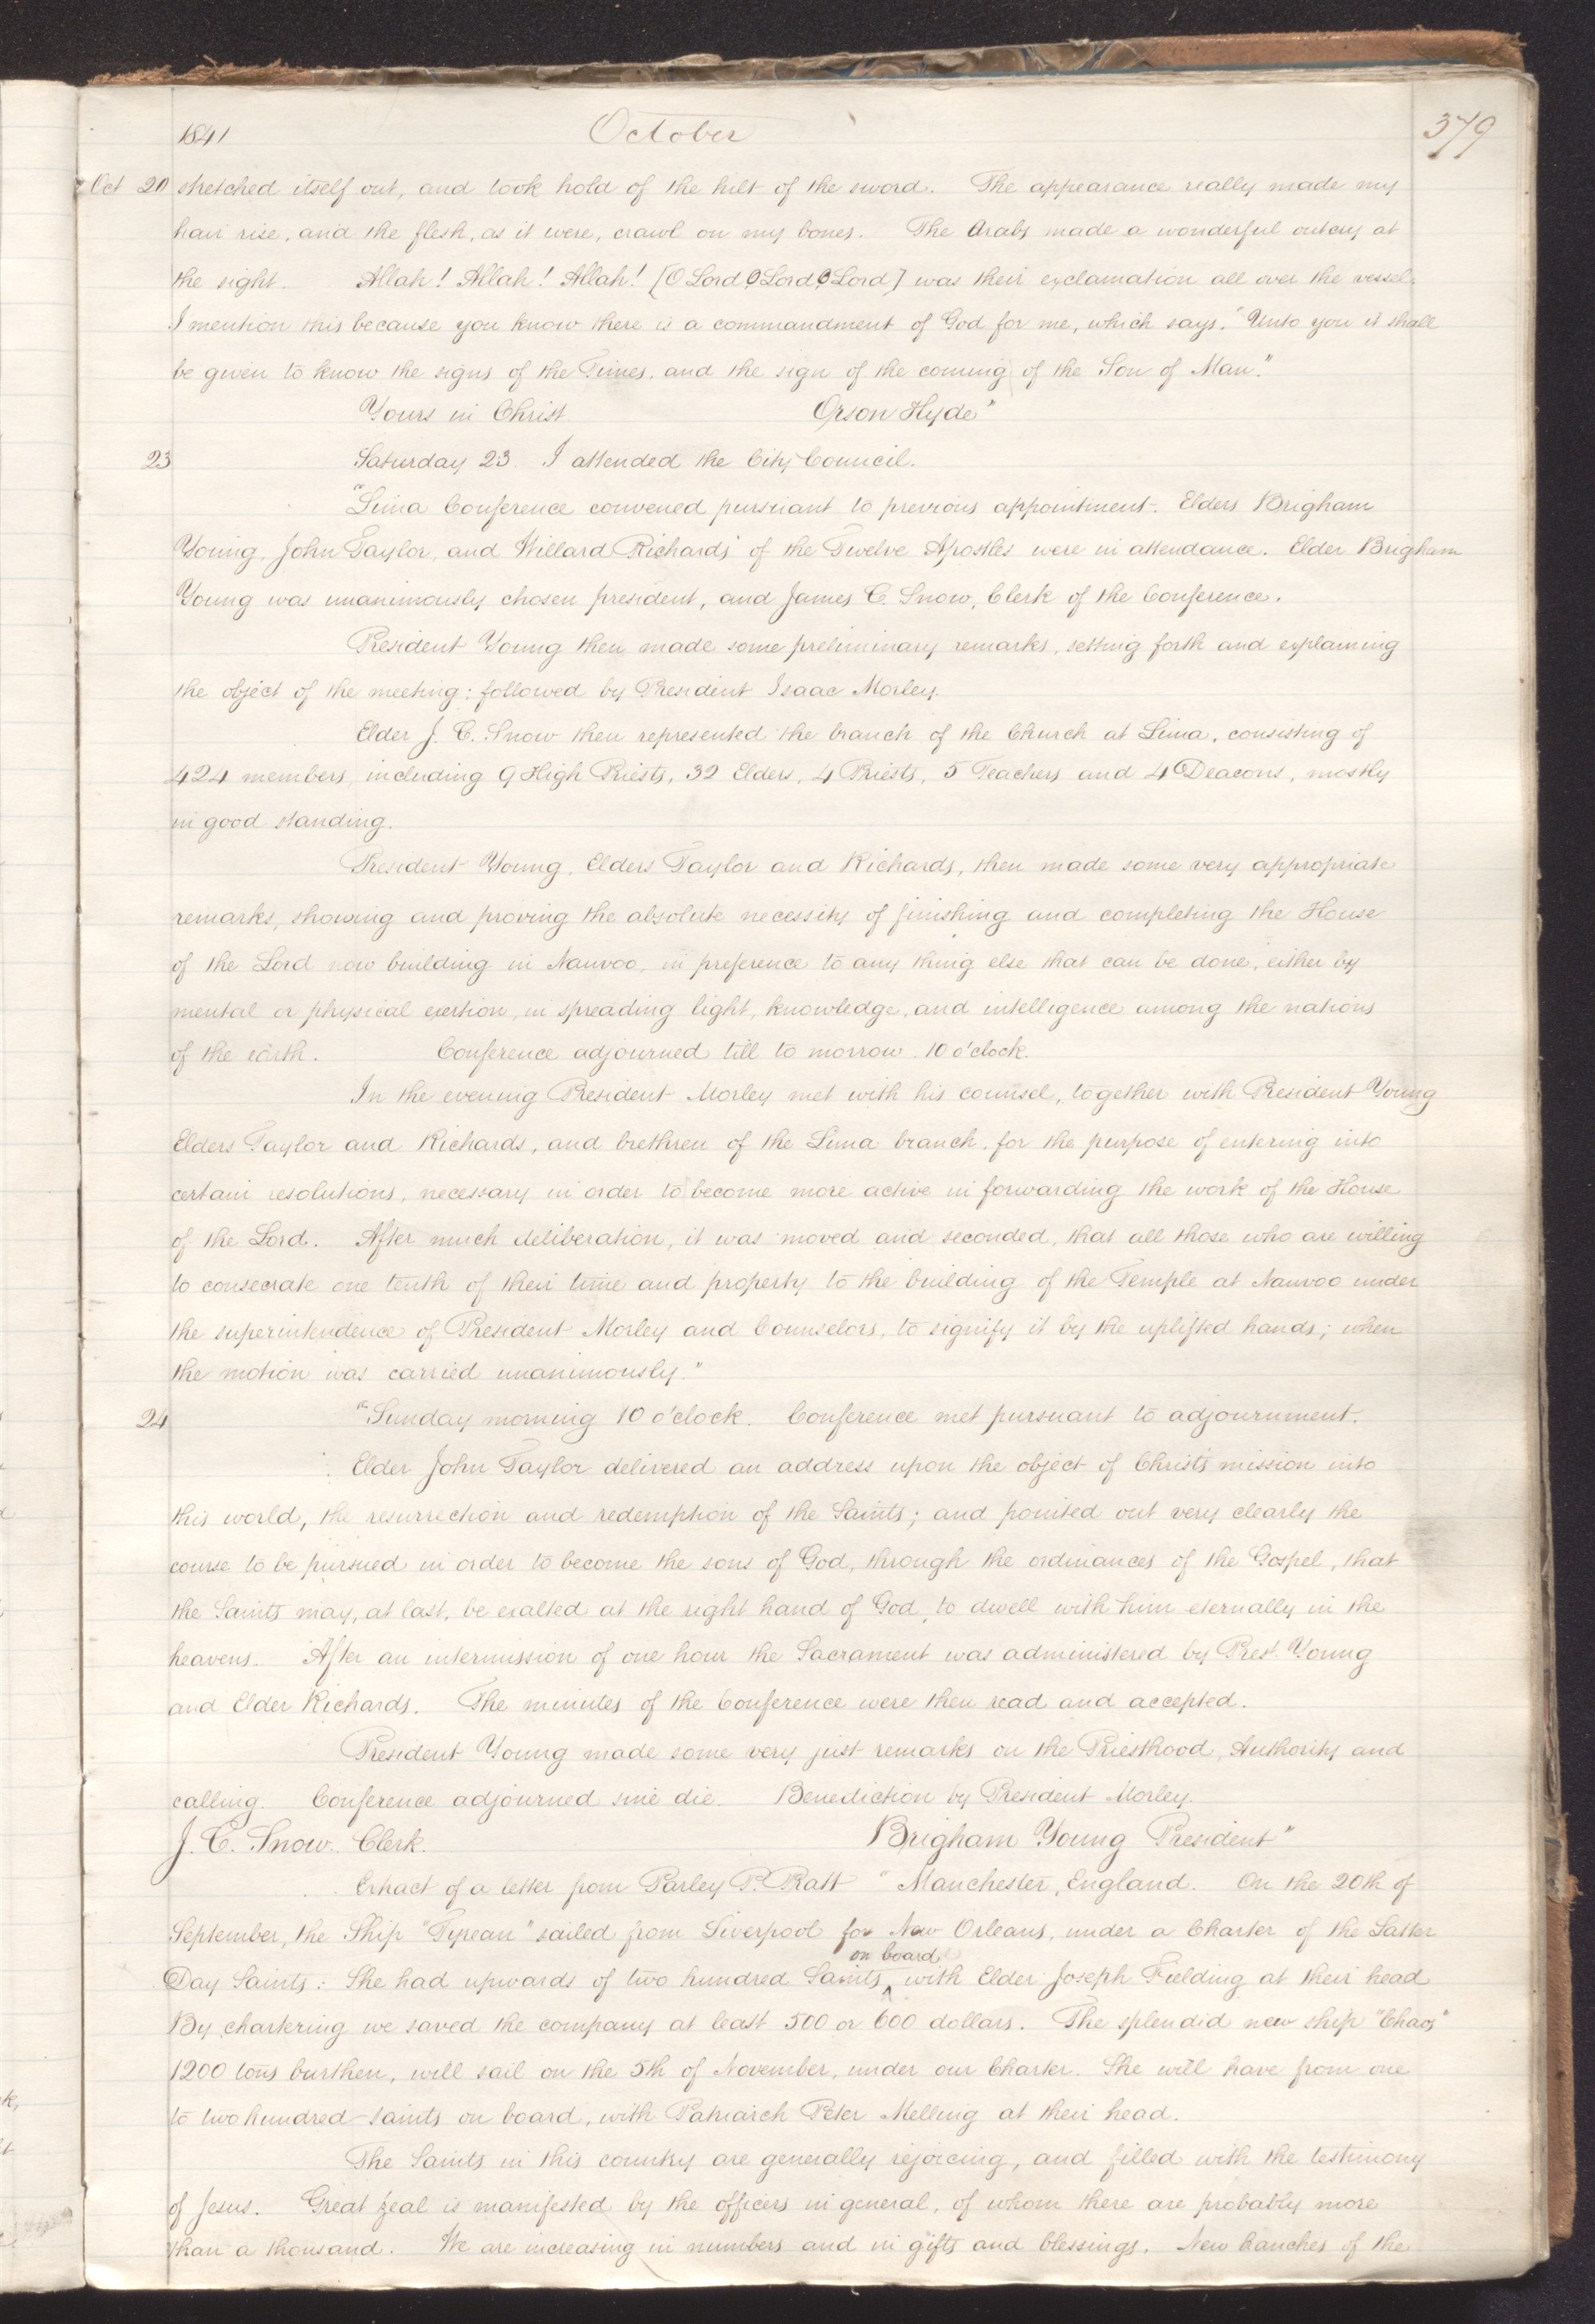 1841 October 379
Oct 20 stretched itself out, and took hold of the hilt of the sword. The appearance really made my
hair rise, and the flesh, as it were, crawl on my bones. The Arabs made a wonderful outcry at
the sight. Allah! Allah! Allah! [O Lord O Lord O Lord] was their exclamation all over the vessel.
I mention this because you know there is a commandment of God for me, which says, "Unto you it shall
be given to know the signs of the Times, and the sign of the coming of the Son of Man."
Yours in Christ Orson Hyde"
23 Saturday 23. I attended the City Council.
"Lima Conference convened pursuant to previous appointment. Elders Brigham
Young, John Taylor, and Willard Richards of the Twelve Apostles were in attendance. Elder Brigham
Young was unanimously chosen president, and James C. Snow, Clerk of the Conference.
President Young then made some preliminary remarks, setting forth and explaining
the object of the meeting; followed by President Isaac Morley.
Elder J. C. Snow then represented the branch of the Church at Lima, consisting of
424 members, including 9 High Priests, 32 Elders, 4 Priests, 5 Teachers and 4 Deacons, mostly
in good standing.
President Young, Elders Taylor and Richards, then made some very appropriate
remarks, showing and proving the absolute necessity of finishing and completing the House
of the Lord now building in Nauvoo, in preference to any thing else that can be done, either by
mental or physical exertion, in spreading light, knowledge, and intelligence among the nations
of the earth. Conference adjourned till to morrow 10 o'clock.
In the evening President Morley met with his counsel, together with President Young
Elders Taylor and Richards, and brethren of the Lima branch, for the purpose of entering into
certain resolutions, necessary in order to become more active in forwarding the work of the House
of the Lord. After much deliberation, it was moved and seconded, that all those who are willing
to consecrate one tenth of their time and property to the building of the Temple at Nauvoo under
the superintendence of President Morley and Counselors, to signify it by the uplifted hands; when
the motion was carried unanimously."
24 "Sunday morning 10 o'clock. Conference met pursuant to adjournment.
Elder John Taylor delivered an address upon the object of Christ's mission into
this world, the resurrection and redemption of the Saints; and pointed out very clearly the
course to be pursued in order to become the sons of God, through the ordinances of the Gospel, that
the Saints may, at last, be exalted at the right hand of God, to dwell with him eternally in the
heavens. After an intermission of one hour the Sacrament was administered by Prest. Young
and Elder Richards. The minutes of the Conference were then read and accepted.
President Young made some very just remarks on the Priesthood, Authority and
calling. Conference adjourned sine die. Benediction by President Morley.
J. C. Snow. Clerk. Brigham Young President"
Extract of a letter from Parley P. Pratt "Manchester, England. On the 20th of
September, the Ship "Tyrean" sailed from Liverpool for New Orleans, under a Charter of the Latter
on board
Day Saints: She had upwards of two hundred Saints ^ with Elder Joseph Fielding at their head
By chartering we saved the company at least 500 or 600 dollars. The splendid new ship "Chaos"
1200 tons burthen, will sail on the 5th of November, under our Charter. She will have from one
to two hundred saints on board, with Patriarch Peter Melling at their head.
The Saints in this country are generally rejoicing, and filled with the testimony
of Jesus. Great zeal is manifested by the officers in general, of whom there are probably more
than a thousand. We are increasing in numbers and in gifts and blessings. New branches of the